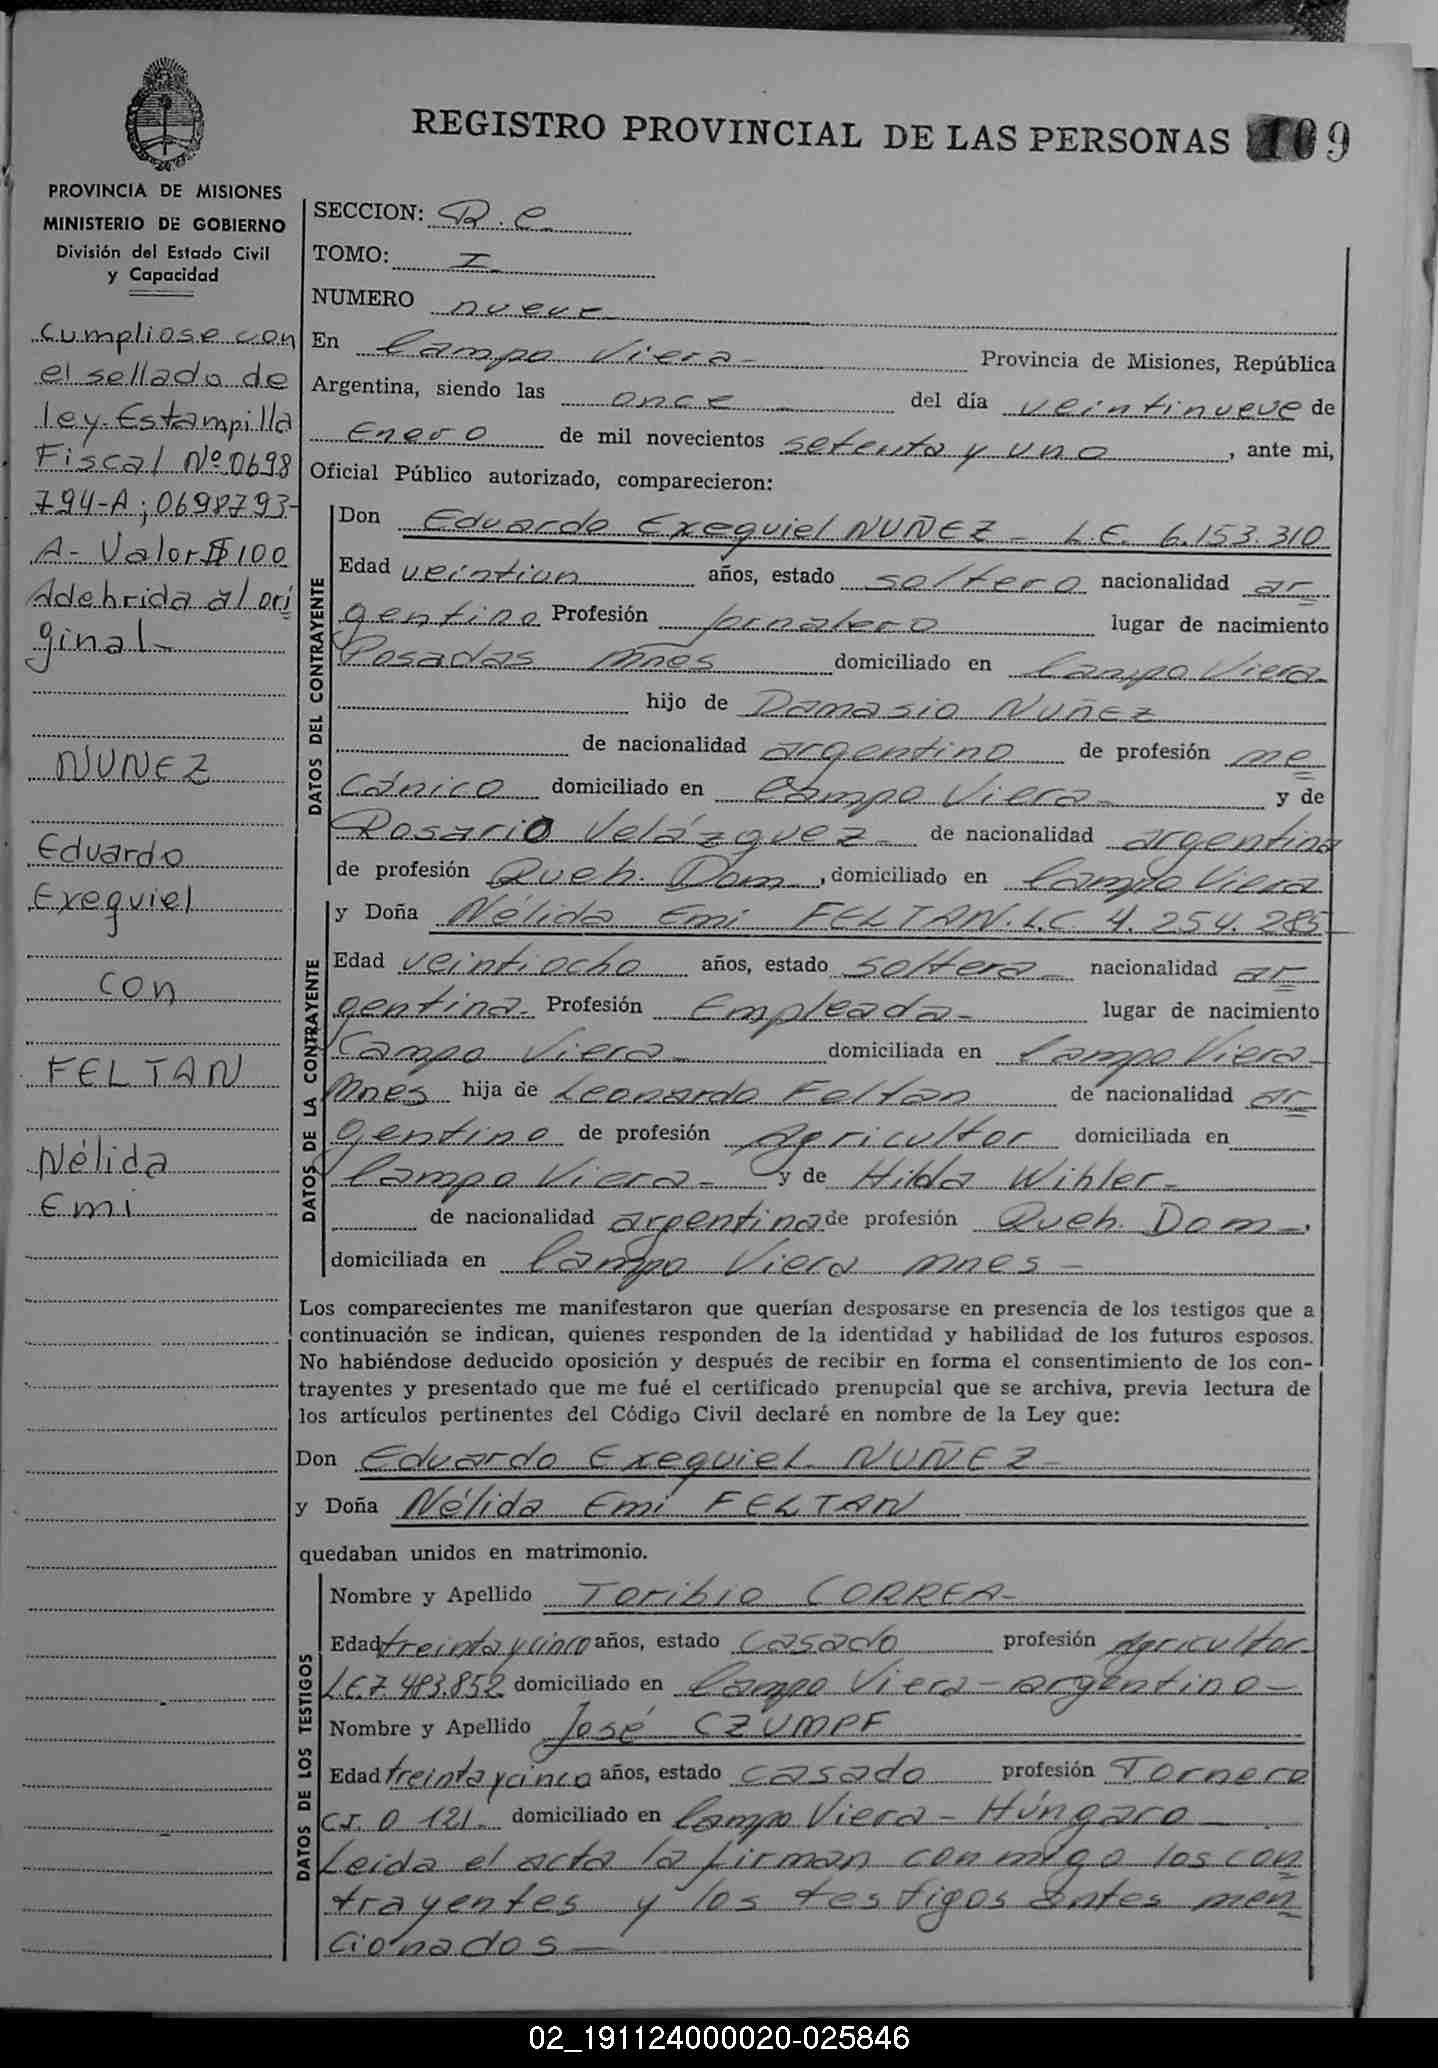 REGISTRO PROVINCIAL DE LAS PERSONAS 109
PROVINCIA DE MISIONES
MINISTERIO DE GOBIERNO
División del Estado Civil
y Capacidad
Cumpliose con
el sellado de
ley. Estampilla
Fiscal Nº 0698
794-A; 0698793-
A- Valor $100
Adehrida al ori
ginal-
NUÑEZ
Eduardo
Exequiel
con
FELTAN
Nélida
Emi
SECCION: R.C.
TOMO: I
NUMERO nueve
En Campo Viera- Provincia de Misiones, República
Argentina, siendo las once - del día veintinueve de
Enero de mil novecientos setenta y uno, ante mi,
Oficial Público autorizado, comparecieron:
DATOS DEL CONTRAYENTE
Don Eduardo Exequiel NUÑEZ - L.E. 6.153.310
Edad veintiun años, estado soltero nacionalidad ar
gentino Profesión jornalero lugar de nacimiento
Posadas Mnes domiciliado en Campo Viera-
hijo de Damasio Nuñez
de nacionalidad argentino de profesión me
cánico domiciliado en Campo Viera- y de
Rosario Velázquez- de nacionalidad argentina
de profesión Queh. Dom, domiciliado en Campo Viera
DATOS DE LA CONTRAYENTE
y Doña Nélida Emi FELTAN. L.C. 4.254.285-
Edad veintiocho años, estado soltera- nacionalidad ar
gentina. Profesión Empleada- lugar de nacimiento
Campo Viera- domiciliada en Campo Viera-
Mnes hija de Leonardo Feltan de nacionalidad ar
gentino de profesión Agricultor domiciliada en
Campo Viera- y de Hilda Wihler-
de nacionalidad argentina de profesión Queh. Dom-,
domiciliada en Campo Viera Mnes-
Los comparecientes me manifestaron que querían desposarse en presencia de los testigos que a
continuación se indican, quienes responden de la identidad y habilidad de los futuros esposos.
No habiéndose deducido oposición y después de recibir en forma el consentimiento de los con-
trayentes y presentado que me fué el certificado prenupcial que se archiva, previa lectura de
los artículos pertinentes del Código Civil declaré en nombre de la Ley que:
Don Eduardo Exequiel NUÑEZ-
y Doña Nélida Emi FELTAN
quedaban unidos en matrimonio.
DATOS DE LOS TESTIGOS
Nombre y Apellido Toribio CORREA-
Edad treinta y cinco años, estado casado profesión Agricultor-
L.E.7.483.852 domiciliado en Campo Viera-argentino-
Nombre y Apellido José CZUMPF
Edad treinta y cinco años, estado casado profesión Tornero
C.I. 0 121. domiciliado en Campo Viera - Húngaro-
Leida el acta la firman conmigo los con
trayentes y los testigos antes men
cionados-
02_191124000020-025846